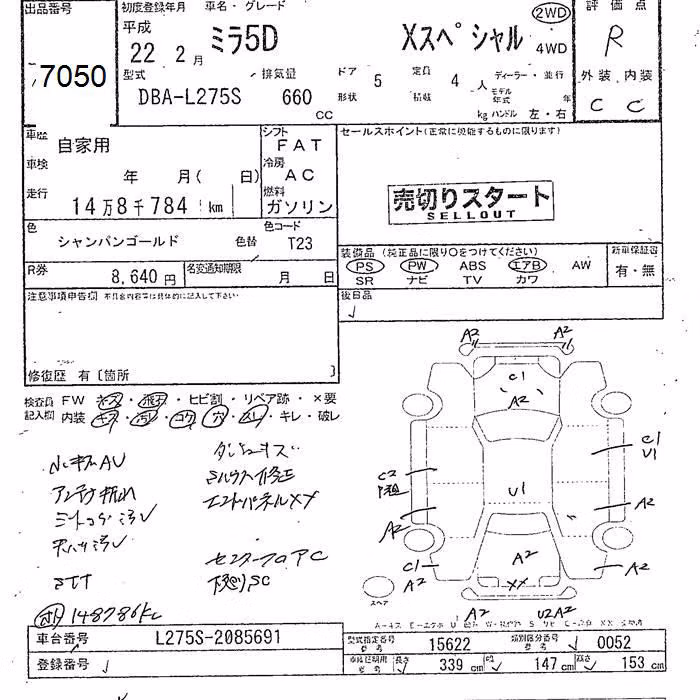 出品番号 初度登録年月 車名・グレード 評価点
平成 22 2月 ミラ5D Xスペシャル 2WD 4WD R
7050
型式 排気量 ドア 5 定員 4人 ディーラー・並行 外装 内装
DBA-L275S 660 CC 形状 積載 kg ハンドル 左・右 C C
モデル年式 年
車歴 自家用 シフト FAT セールスポイント(正常に機能するものに限ります)
車検 年 月( 日) 冷房 AC
走行 14万8千784 km 燃料 ガソリン
売切りスタート
SELLOUT
色 シャンパンゴールド 色替 色コード T23
装備品 (純正品に限り○をつけてください) 新車保証書
PS PW ABS エアB AW 有・無
SR ナビ TV カワ
R券 8,640円 名変通知期限 月 日
後日品
注意事項申告欄 不具合内容等は具体的に記入して下さい
修復歴 有〔箇所 〕
検査員 FW キズ・飛石・ヒビ割・リペア跡・×要
記入欄 内装 キズ・汚レ・コゲ・穴・スレ・キレ・破レ
アンテナ折れ
シルウス修正
エンドパネルXX
センターフロアC
下廻りSC
148786km
A2 A2
C1
A2
C1
U1
C2
U1
A2 A2
C1 A2
A2 XX A2
A2 U2A2
スペア
車台番号 L275S-2085691 型式指定番号 15622 類別区分番号 0052
登録番号 長さ 339 cm 幅 147 cm 高さ 153 cm